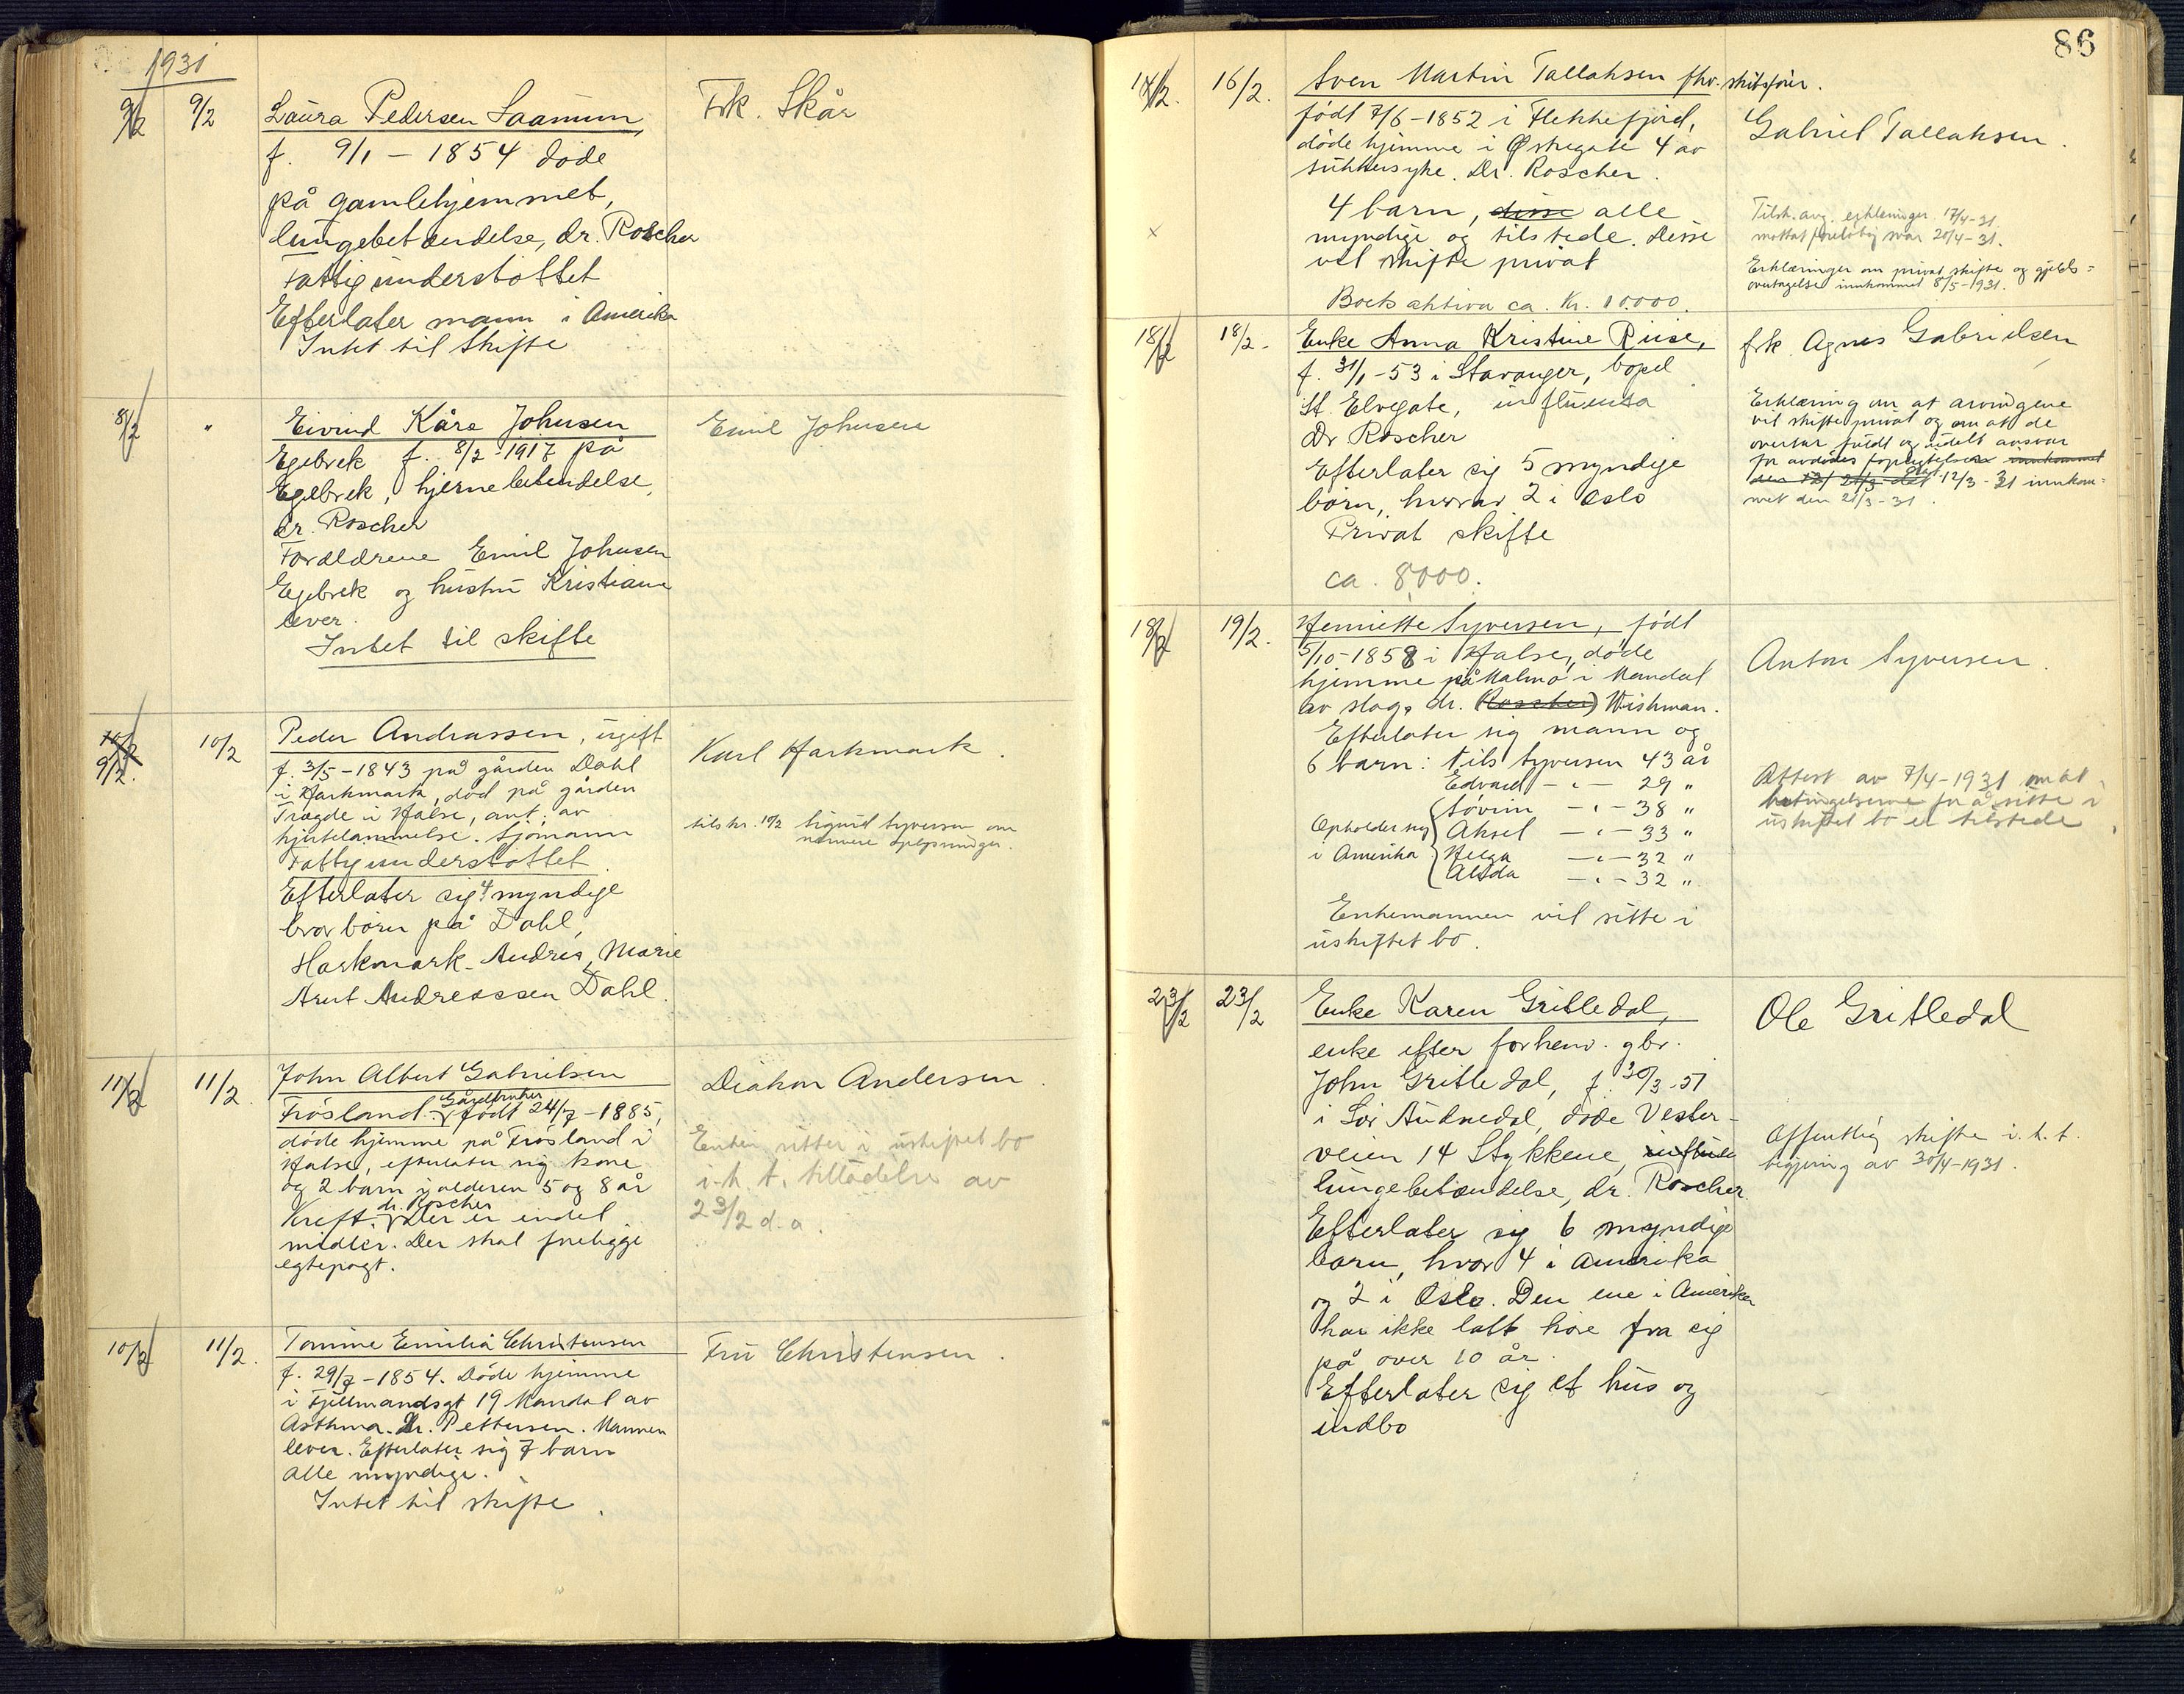 1931
9/2 9/2 Laura Pedersen Saanum, Frk. Skår
f. 9/1 - 1854 døde
på gamlehjemmet,
lungebetændelse, dr. Roscher
Fattigunderstøttet
Efterlater mann i Amerika
Intet til skifte
8/2 " Eivind Kåre Johnsen Emil Johnsen
Egebrek f. 8/2-1917 på
Egebrek, hjernebetendelse,
dr. Roscher
Forældrene Emil Johnsen
Egebrek og hustru Kristiane
lever.
Intet til skifte
10/2
9/2. 10/2 Peder Andreassen, ugift Karl Harkmark.
f. 3/5-1843 på gården Dahl
i Harkmark, død på gården
Trægde i Halse, ant. av
hjertelammelse. Sjømann
tilskr. 10/2 Sigurd Syversen om
nærmere oplysninger.
Fattigunderstøttet.
Efterlater sig 4 myndige
bror børn på Dahl,
Harkmark. Andreas, Marie
Arnt Andreassen Dahl.
11/2 11/2. John Albert Gabrielsen Diakon Andersen.
Gårdbruker
Frøsland. født 24/7-1885,
døde hjemme på Frøsland i
Halse, efterlater sig kone
og 2 barn i alderen 5 og 8 år
dr. Roscher
Kreft. Der er endel
midler. Der skal foreligge
egtepagt.
Enken sitter i uskiftet bo
i.h.t. tilladelse av
23/2 d.a.
10/2 11/2. Tomine Emilie Christensen Fru Christensen.
f. 29/7-1854. Døde hjemme
i Fjellmandsgt 19 Mandal av
Asthma. Dr. Pettersen. Mannen
lever. Efterlater sig 7 barn
alle myndige.
Intet til skifte.
86
17/2. 16/2. Sven Martin Tallaksen fhv. skibsfører.
født 7/6-1852 i Flekkefjord,
døde hjemme i Østregate 4 av
sukkersyke. Dr. Roscher.
Gabriel Tallaksen.
4 barn, disse alle
x myndige og tilstede. Disse
vil skifte privat
Boets aktiva ca. Kr. 10.000.
Tilsk. ang. erklæringer 17/4-31.
mottat foreløbig svar 20/4-31.
Erklæringer om privat skifte og gjelds=
overtagelse innkommet 8/5-1931.
18/2 18/2- Enke Anna Kristine Riise, frk. Agnes Gabrielsen
f. 31/1-53 i Stavanger, bopel
St. Elvegate, influensa
Dr Roscher
Efterlater sig 5 myndige
børn, hvorav 2 i Oslo
Privat skifte
ca. 8000.
Erklæring om at arvingene
vil skifte privat og om at de
overtar fuldt og udelt ansvar
for avdødes forpliktelser innkommet
den 12/ 21/3 dat. 12/3-31 innkom=
met den 21/3-31.
18/2 19/2. Henriette Syversen, født Anton Syversen.
5/10-1858 i Halse, døde
hjemme på Malmø i Mandal
av slag, dr. (Roscher) Wishman.
Efterlater sig mann og
6 barn: Nils Syversen 43 år
Edvard - " - 29 "
Søvrin - " - 38 "
Opholder sig Aksel - " - 33 "
i Amerika Helga - " - 32 "
Alida - " - 32 "
Enkemannen vil sitte i
uskiftet bo.
Attest av 7/4-1931 om at
betingelserne for å sitte i
uskiftet bo er tilstede
23/2 23/2 Enke Karen Gritledal, Ole Gritledal
enke efter forhenv. gbr.
John Gritledal, f. 30/3-51
i Sør Audnedal, døde Vester-
veien 14 Stykkene, influe
lungebetændelse, dr. Roscher.
Efterlater sig 6 myndige
barn, hvor 4 i Amerika
og 2 i Oslo. Den ene i Amerika
har ikke latt høre fra sig
på over 10 år.
Efterlater sig et hus og
indbo
Offentlig skifte i.h.t.
begjæring av 30/4-1931.